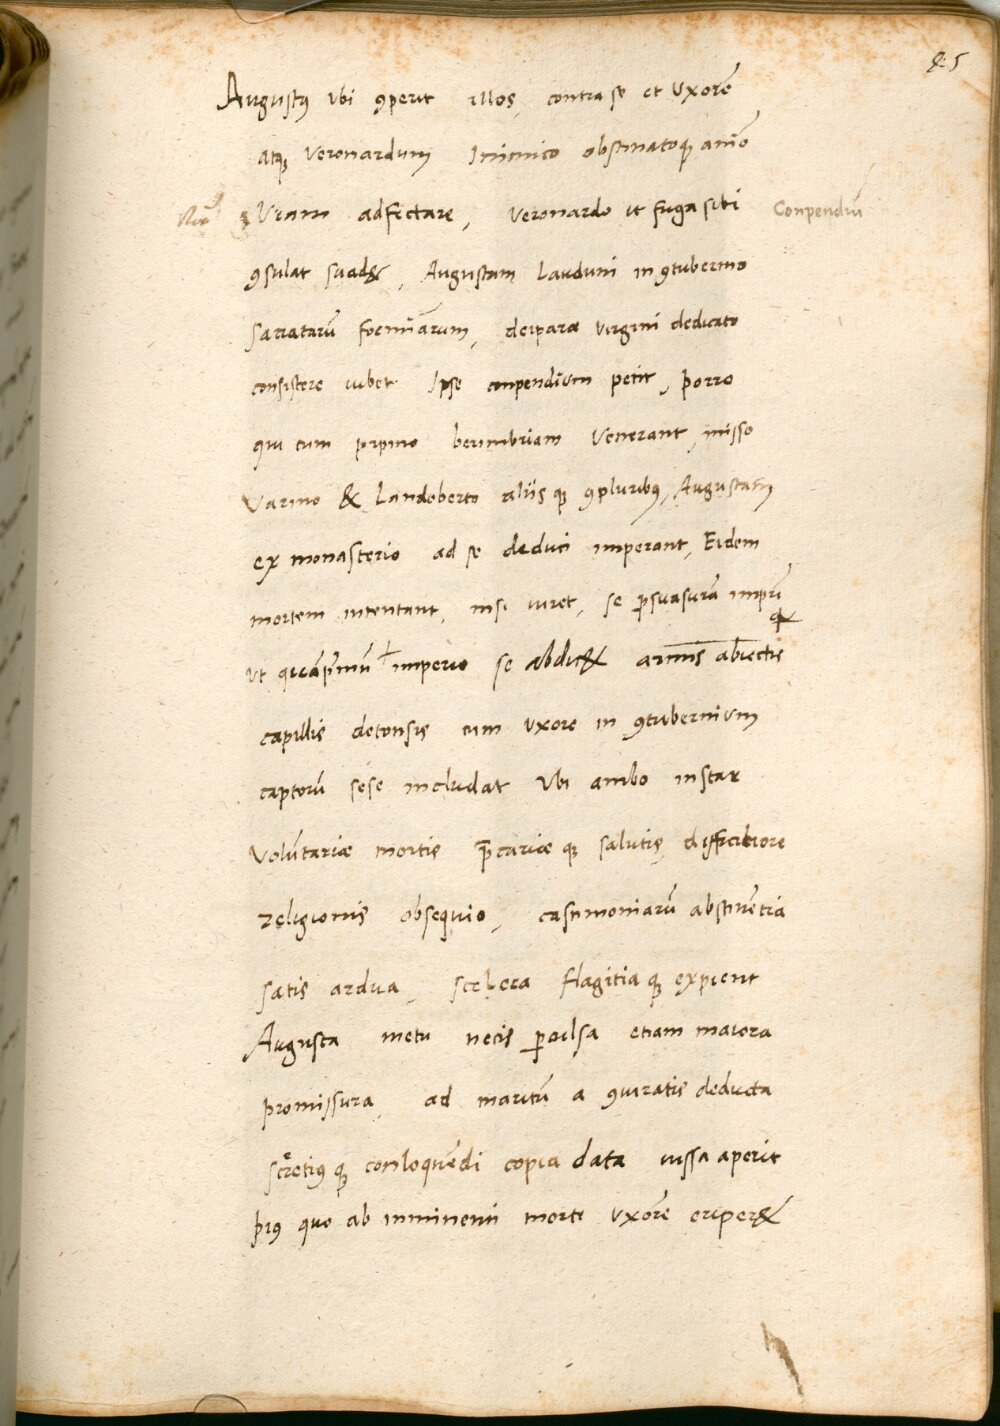 85
Augustꝰ ubi ꝯperit illos contra se et Uxorē
atqꝫ Veronardum Inimico obstinatoqꝫ aīo
viam adfectare, Veronardo ut fuga sibi Conpendiū
ꝯsulat suad&, Augustam Lauduni in ꝯtubernio
sacratarū foemīarum, deiparæ virgini dedicato
consistere iubet Ipse conpendium petit, porro
qui cum pipino berimbriam Venerant, misso
Varino & Landoberto aliis qꝫ ꝯpluribꝰ, Augustam
ex monasterio ad se deduci imperant, Eidem
mortem intentant, nisi iuret, se ꝑsuasurā impri
qꝫ
ut quāprimū imperio se abdic& armis abiectis
capillis detonsis cum uxore in ꝯtubernium
captorū sese includat Ubi ambo instar
Volūtariæ mortis p̄cariæ qꝫ salutis, difficiliore
religionis obsequio, castimoniarū abstinētia
satis ardua, scelera flagitia qꝫ expient
Augusta metu necis ꝑculsa etiam maiora
promissura, ad maritū a ꝯiuratis deducta
scr̄etiꝰ qꝫ conloquēdi copia data iussa aperit
priꝰ quo ab inminenti morte Uxorē eriper&